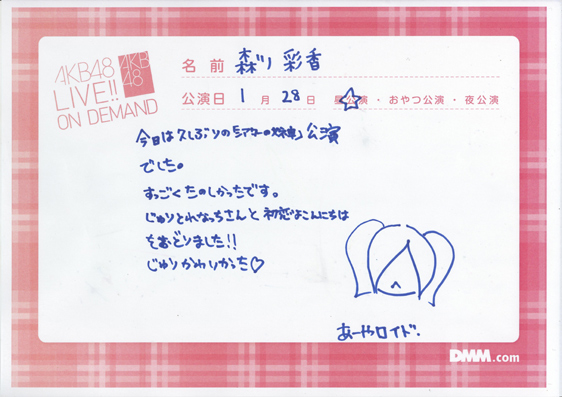 AKB48
LIVE!!
ON DEMAND
AKB
48
名前 森川 彩香
公演日 1月 28日 昼公演・おやつ公演・夜公演
今日は久しぶりの「シアターの女神」公演
でした。
すっごくたのしかったです。
じゅりとれなっちさんと初恋よこんにちは
をおどりました!!
じゅりかわいかった♡
あーやロイド.
DMM.com